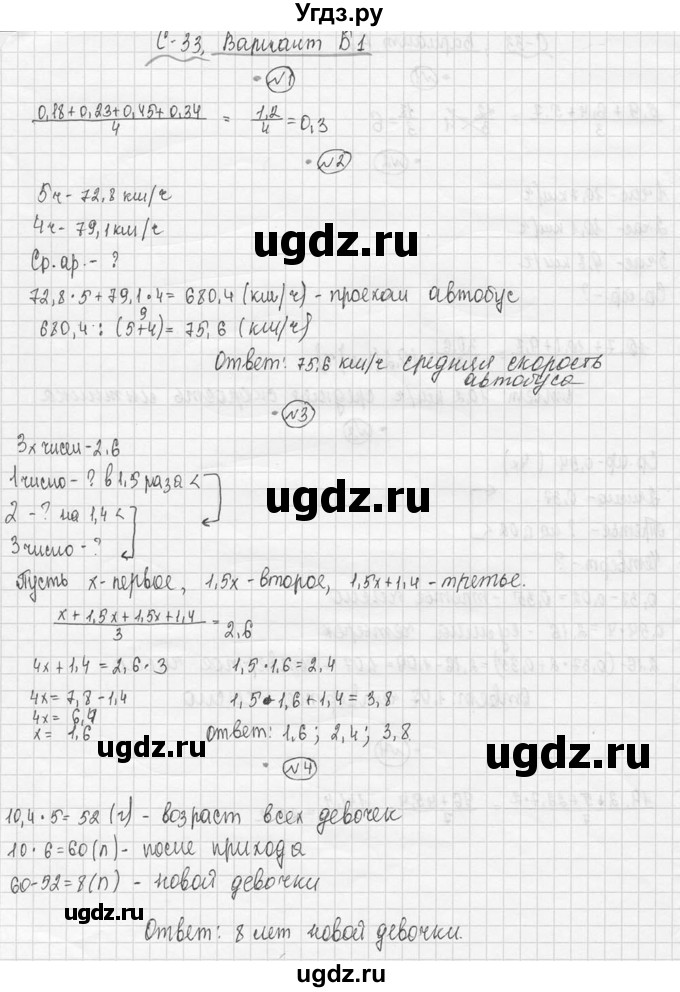 Угдз.ру
С-33. Вариант Б1
№1
(0,18+0,23+0,45+0,34)/4 = 1,2/4 = 0,3
№2
5ч - 72,8 км/ч
4ч - 79,1 км/ч
Ср. ар. - ?
ugdz.ru
72,8 · 5 + 79,1 · 4 = 680,4 (км/ч) - проехал автобус
9
680,4 : (5+4) = 75,6 (км/ч)
Ответ: 75,6 км/ч средняя скорость
автобуса
№3
3х чисел - 2,6
1 число - ? в 1,5 раза <
2 - ? на 1,4 <
3 число - ?
ugdz.ru
Пусть х - первое, 1,5х - второе, 1,5х+1,4 - третье.
(х + 1,5х + 1,5х + 1,4)/3 = 2,6
4х + 1,4 = 2,6 · 3 1,5 · 1,6 = 2,4
4х = 7,8 - 1,4 1,5 · 1,6 + 1,4 = 3,8
4х = 6,4
х = 1,6 Ответ: 1,6; 2,4; 3,8
ugdz.ru
ugdz.ru
№4
10,4 · 5 = 52 (г) - возраст всех девочек
10 · 6 = 60 (л) - после прихода
60-52 = 8 (л) - новой девочки
ugdz.ru
Ответ: 8 лет новой девочки.
ugdz.ru
ugdz.ru